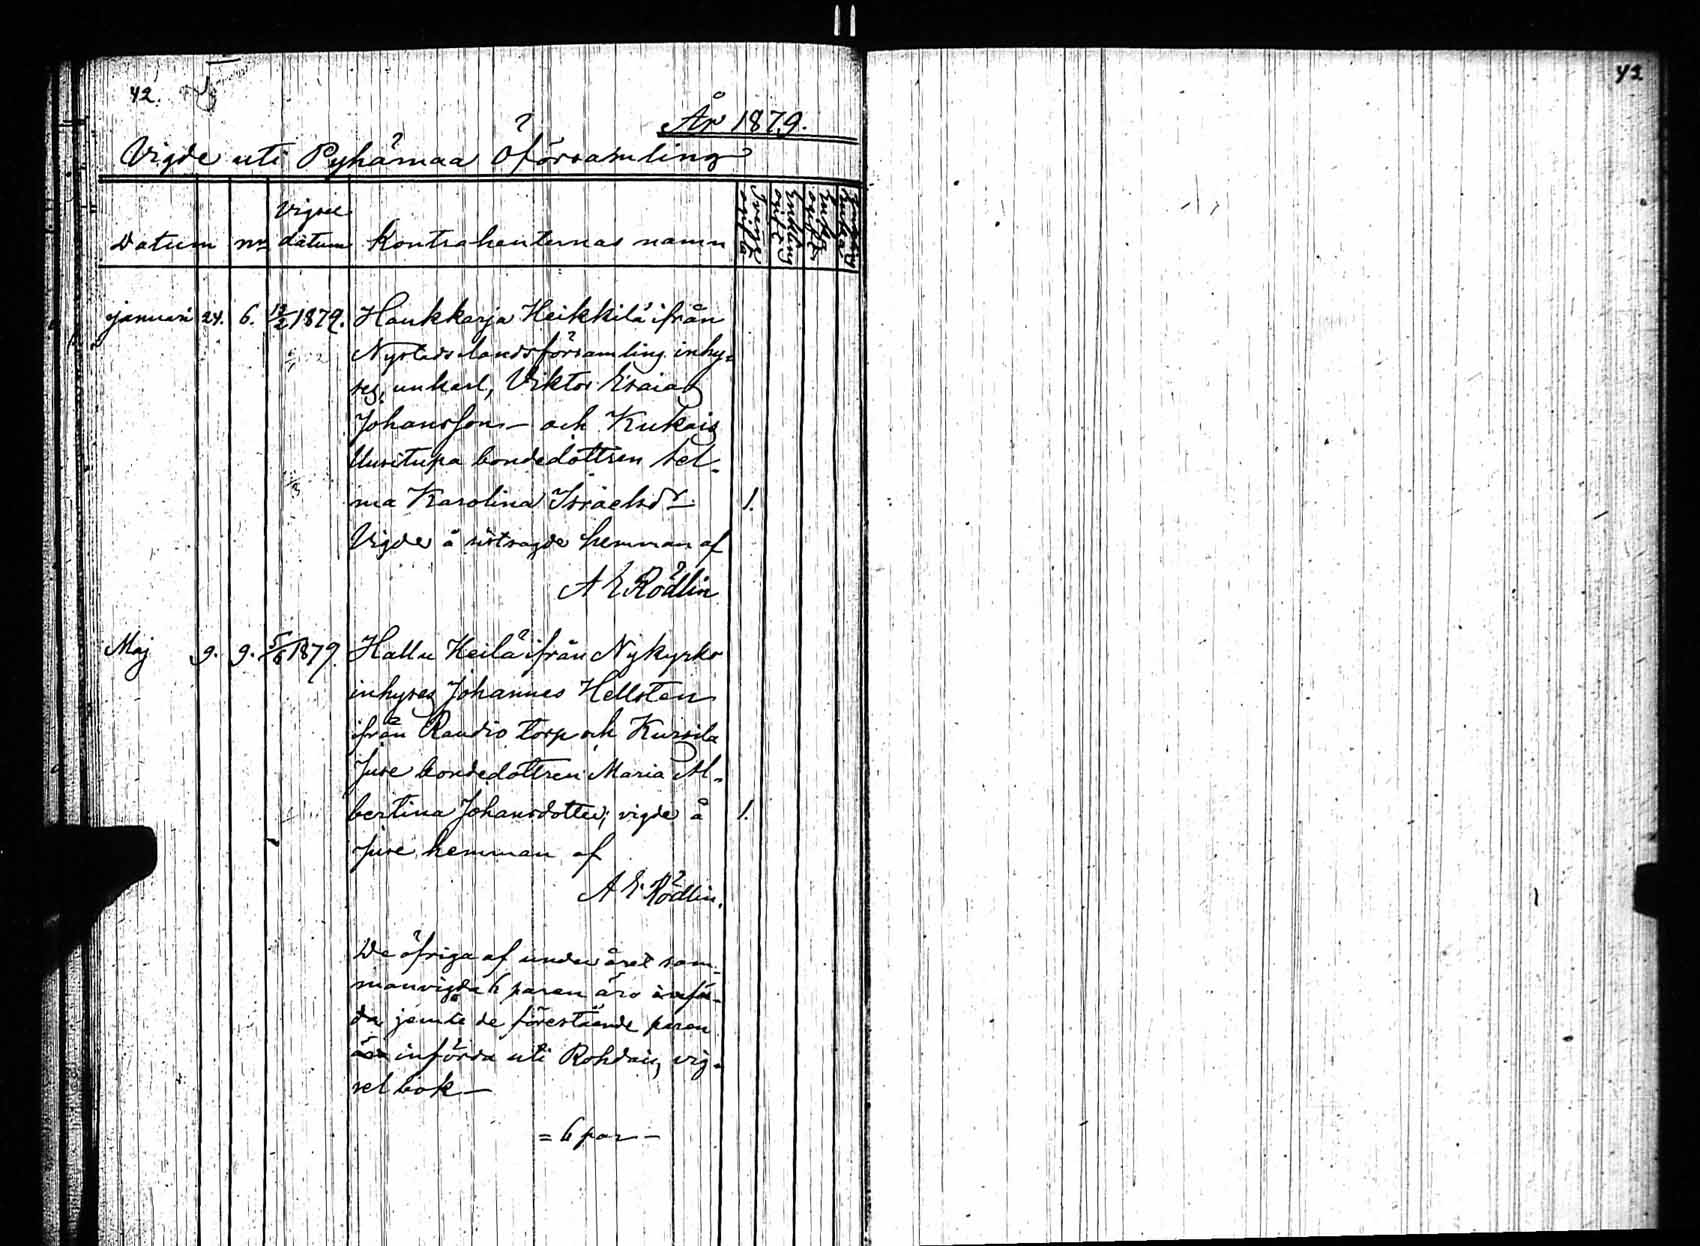 42.
42
År 1879.
Vigde uti Pyhämaa Öförsamling
Datum nr Vigsel datum Kontrahenternas namn
januari 24. 6. 12/2 1879. Haukkarja Heikkilä ifrån
Nystads landsförsamling inhy-
ses, unkarl, Viktor Esaias
Johansson — och Kukais
Uusitupa bondedottren Sel-
ma Karolina Israelsdr 1.
Vigde å hemman af
A E Rödlin
Maj 9. 9. 5/6 1879. Hallu Heilä ifrån Nykyrko
inhyses Johannes Hellsten
ifrån Raudio torp och Kursila
Juse bondedottren Maria Al-
bertina Johansdotter; vigde å 1.
Juse hemman af
A E Rödlin.
De öfriga af under året sam-
manvigda 6 paren äro införda
jemte de förestående paren
införda uti Rohdais vig-
sel bok —
= 6 par —